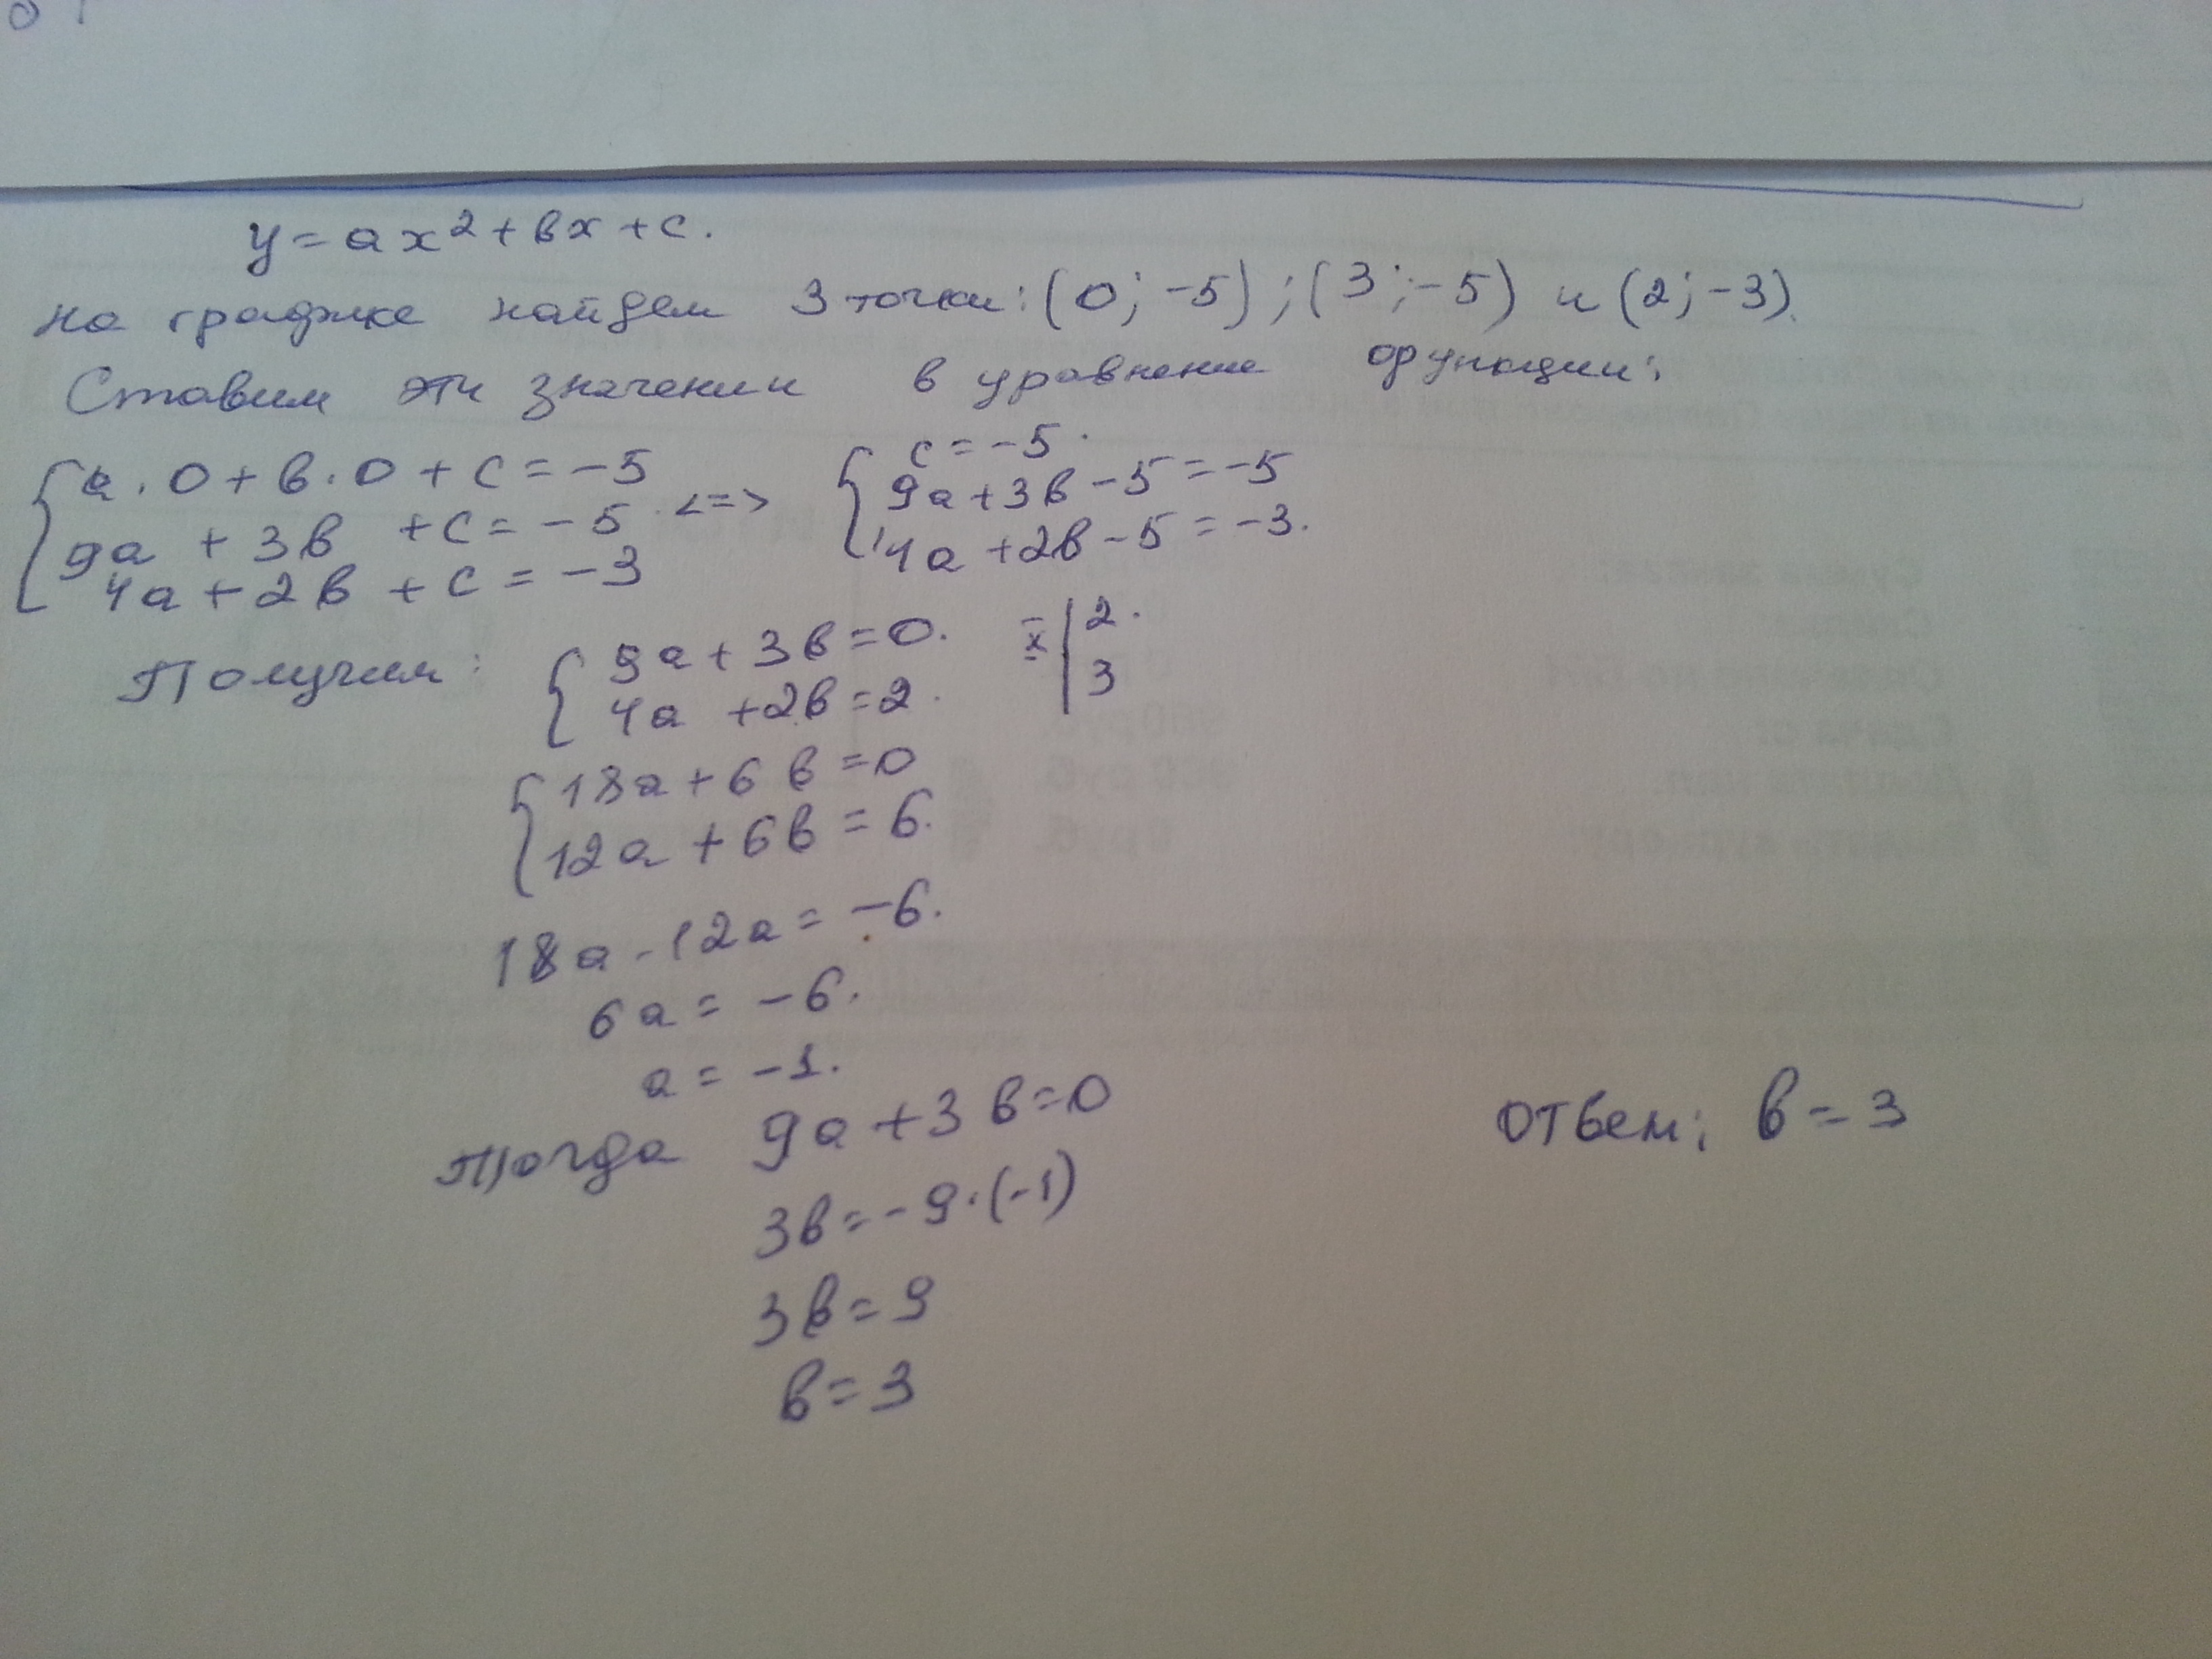 y = ax² + вx + c.
На графике найдем 3 точки: (0; -5); (3; -5) и (2; -3).
Ставим эти значении в уравнение функции:
{ a · 0 + в · 0 + c = -5
9a + 3в + c = -5
4a + 2в + c = -3
<=>
{ c = -5.
9a + 3в - 5 = -5
4a + 2в - 5 = -3.
Получим: { 9a + 3в = 0. | 2.
4a + 2в = 2. | 3
{ 18a + 6в = 0
12a + 6в = 6.
18a - 12a = -6.
6a = -6.
a = -1.
Тогда 9a + 3в = 0
3в = -9 · (-1)
3в = 9
в = 3
Ответ: в = 3